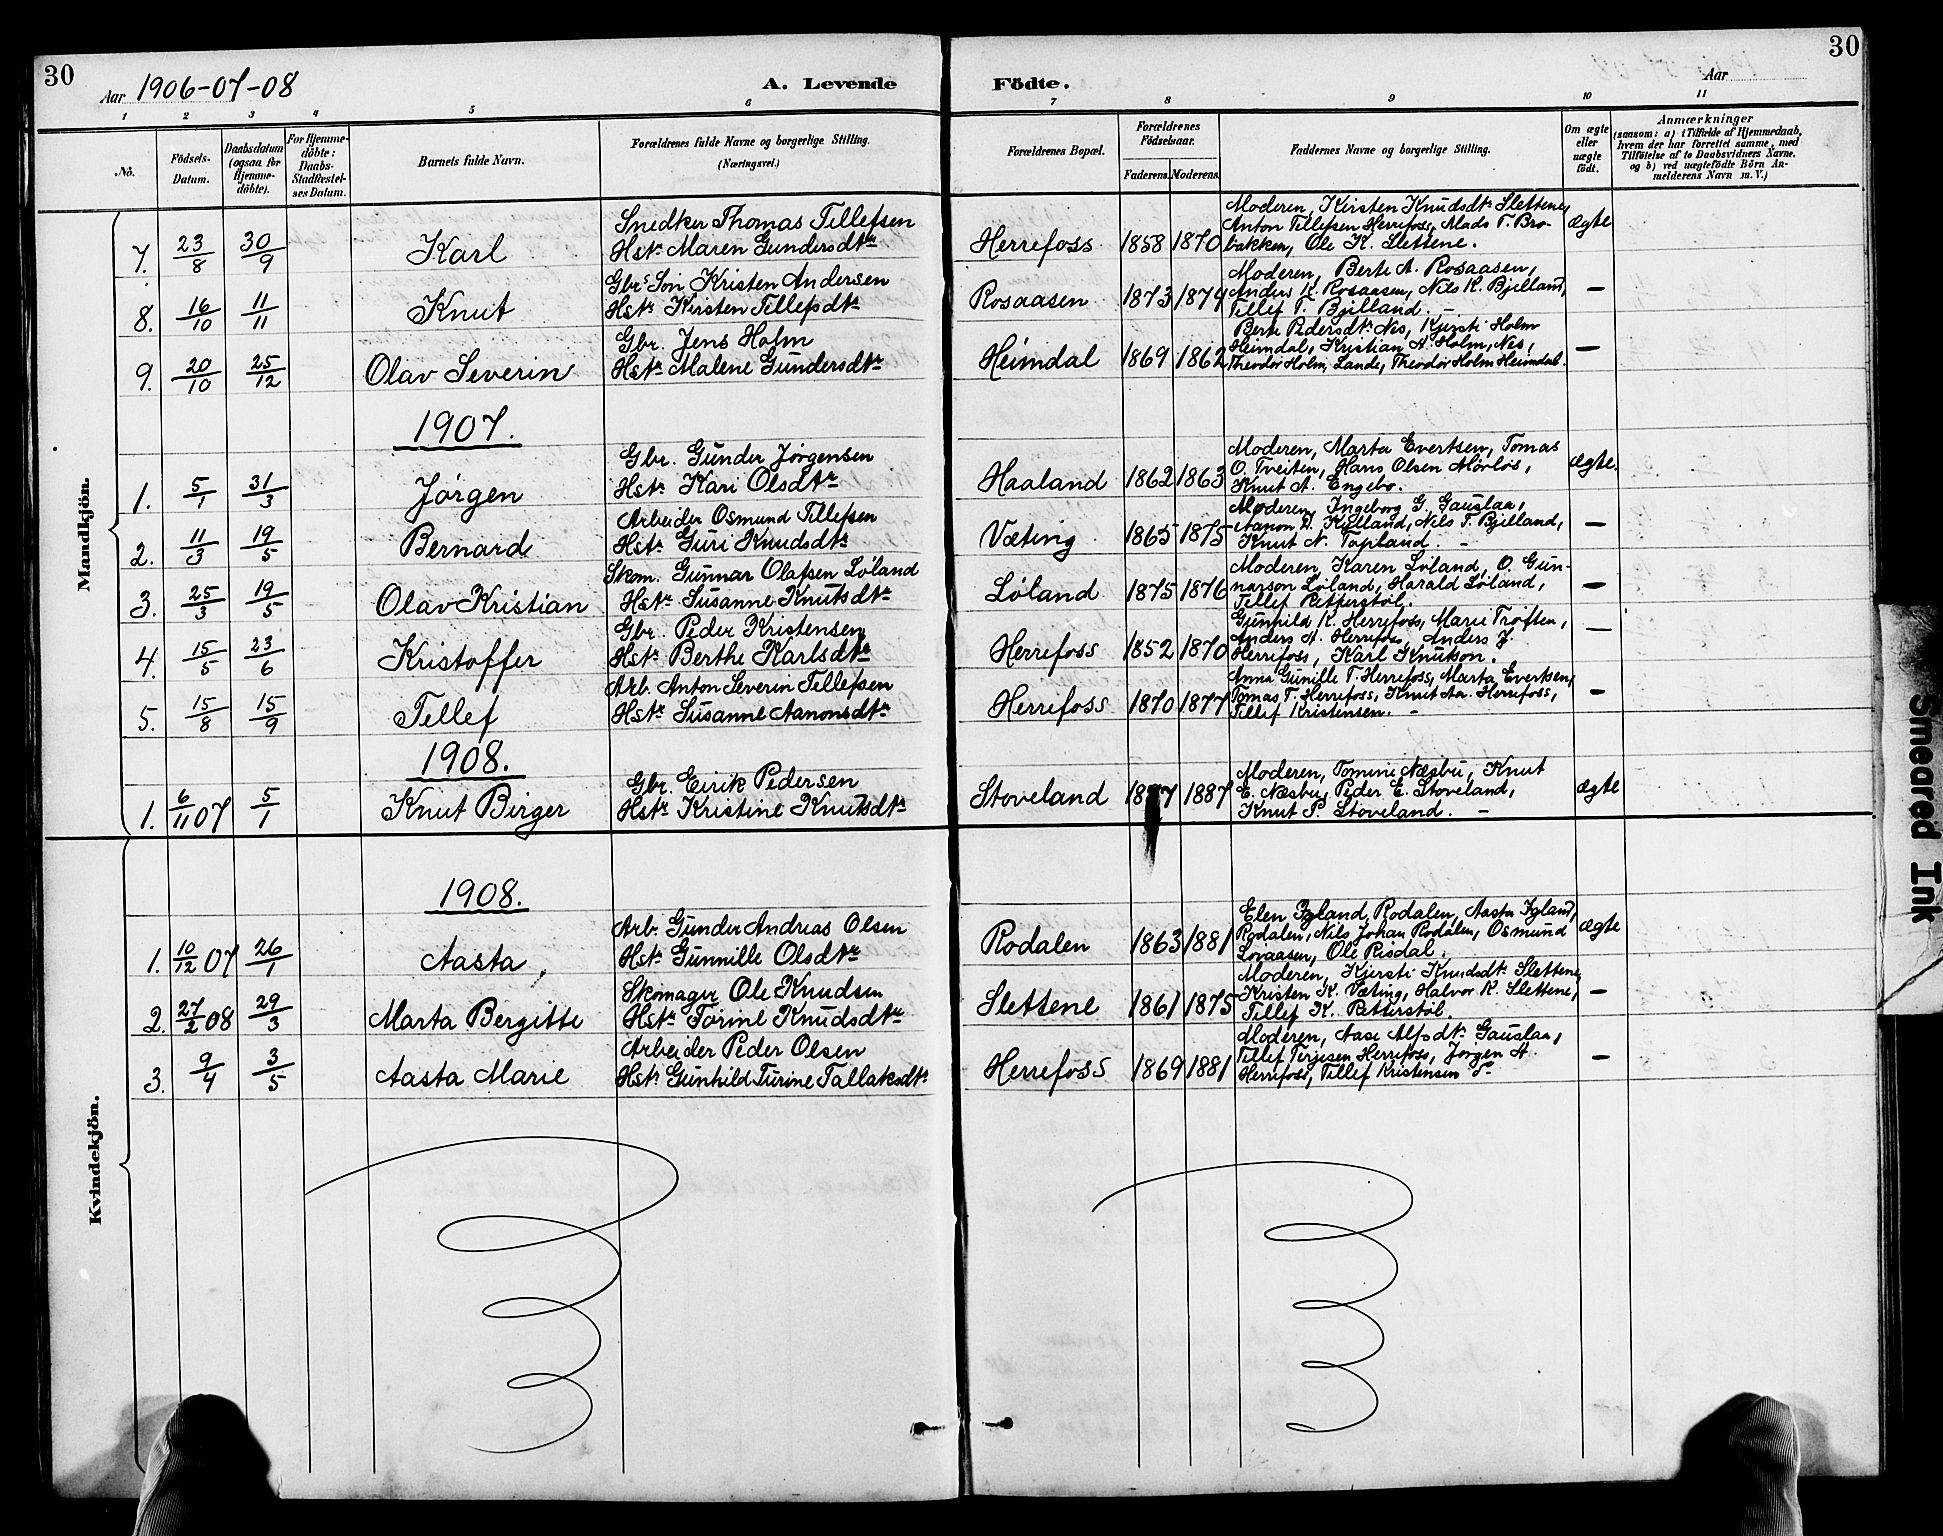 30
Aar 1906-07-08
A. Levende Födte.
Aar
30
1 2 3 4 5 6 7 8 9 10 11
No.
Födsels-Datum.
Daabsdatum (ogsaa for Hjemme-döbte).
For Hjemme-döbte: Daabs-Stadfæstel-ses Datum.
Barnets fulde Navn.
Forældrenes fulde Navne og borgerlige Stilling.
(Næringsvei.)
Forældrenes Bopæl.
Forældrenes Födselsaar.
Faderens. Moderens.
Faddernes Navne og borgerlige Stilling.
Om ægte eller uægte födt.
Anmærkninger
(saasom: a) i Tilfælde af Hjemmedaab, hvem der har forrettet samme, med Tilföielse af to Daabsvidners Navne, og b) ved uægtefödte Börn An-melderens Navn m. V.)
Mandkjön.
7. 23/8 30/9 Karl
Snedker Thomas Tillefsen
Hstr Maren Gundersdtr
Herrefoss 1858 1870
Moderen, Kirsten Knudsdtr Slettene,
Anton Tillefsen Herrefoss, Mads T. Bro-
bakken, Ole K. Slettene.
ægte
8. 16/10 11/11 Knut
Gbrs Søn Kristen Andersen
Hstr Kirsten Tillefsdtr
Rosaasen 1873 1874
Moderen, Berte A. Rosaasen,
Anders K. Rosaasen, Nils K. Bjelland,
Tillef T. Bjelland. -
—
9. 20/10 25/12 Olav Severin
Gbr. Jens Holm
Hstr Malene Gundersdtr
Heimdal 1869 1862
Berte Pedersdtr Nes, Kjersti Holm
Heimdal, Kristian H Holm, Nes,
Theodor Holm, Lande, Theodor Holm Heimdal.
—
1907.
1. 5/1 31/3 Jørgen
Gbr. Gunder Jørgensen
Hstr Kari Olsdtr
Haaland 1862 1863
Moderen, Marta Evertsen, Tomas
O. Tveiten, Hans Olsen Mørløs,
Knut A. Engebo.
ægte.
2. 11/3 19/5 Bernard
Arbeider Osmund Tillefsen
Hstr Guri Knudsdtr
Væting 1865 1875
Moderen, Ingeborg G. Gauslaa,
Aanon D. Kylland, Nils T. Bjelland,
Knut N. Topland. -
—
3. 25/3 19/5 Olav Kristian
Skom. Gunnar Olafsen Løland
Hstr Susanne Knutsdtr
Løland 1875 1876
Moderen, Karen Løland, O. Gun-
narson Løland, Harald Løland,
Tillef Retterstøl.
—
4. 15/5 23/6 Kristoffer
Gbr. Peder Kristensen
Hstr Berthe Karlsdtr
Herrefoss 1852 1870
Gunhild K. Herrefoss, Marie Troften,
Anders H. Herrefoss, Anders J
Herrefoss, Karl Knutson.
—
5. 15/8 15/9 Tellef
Arb. Anton Severin Tillefsen
Hstr Susanne Aanonsdtr
Herrefoss 1870 1877
Anna Gunille T. Herrefoss, Marta Evertsen,
Tomas T. Herrefoss, Knut Aa. Herrefoss,
Tillef Kristensen. -
—
1908.
1. 6/11 07 5/1 Knut Birger
Gbr. Eirik Pedersen
Hstr Kristine Knutsdtr
Stoveland 1887
Moderen, Tomine Næsbu, Knut
E. Næsbu, Peder E. Stoveland,
Knut P. Stoveland. -
ægte
Kvindekjön.
1908.
1. 10/12 07 26/1 Aasta
Arb. Gunder Andreas Olsen
Hstr Gunnille Olsdtr
Rodalen 1863 1881
Elen Igland, Rodalen, Aasta Igland,
Rodalen, Nils Johan Rodalen, Osmund
Løvaasen, Ole Risdal.
ægte
2. 27/2 08 29/3 Marta Bergitte
Skomager Ole Knudsen
Hstr Torine Knudsdtr
Slettene 1861 1875
Moderen, Kjersti Knudsdtr Slettene,
Kristen K. Væting, Halvor K. Slettene,
Tillef K. Retterstøl.
—
3. 9/4 3/5 Aasta Marie
Arbeider Peder Olsen
Hstr Gunhild Turine Tallaksdtr
Herrefoss 1869 1881
Moderen, Aase Alfsdtr Gauslaa,
Tillef Terjesen Herrefoss, Jørgen H.
Herrefoss, Tillef Kristensen
—
Smeared Ink